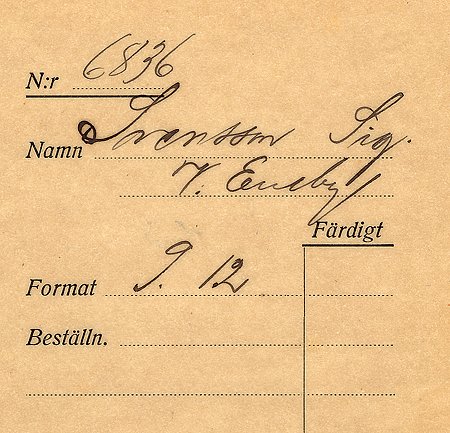 N:r 6836
Namn Svensson Sig.
V. Eneby
Färdigt
Format 9. 12
Beställn.